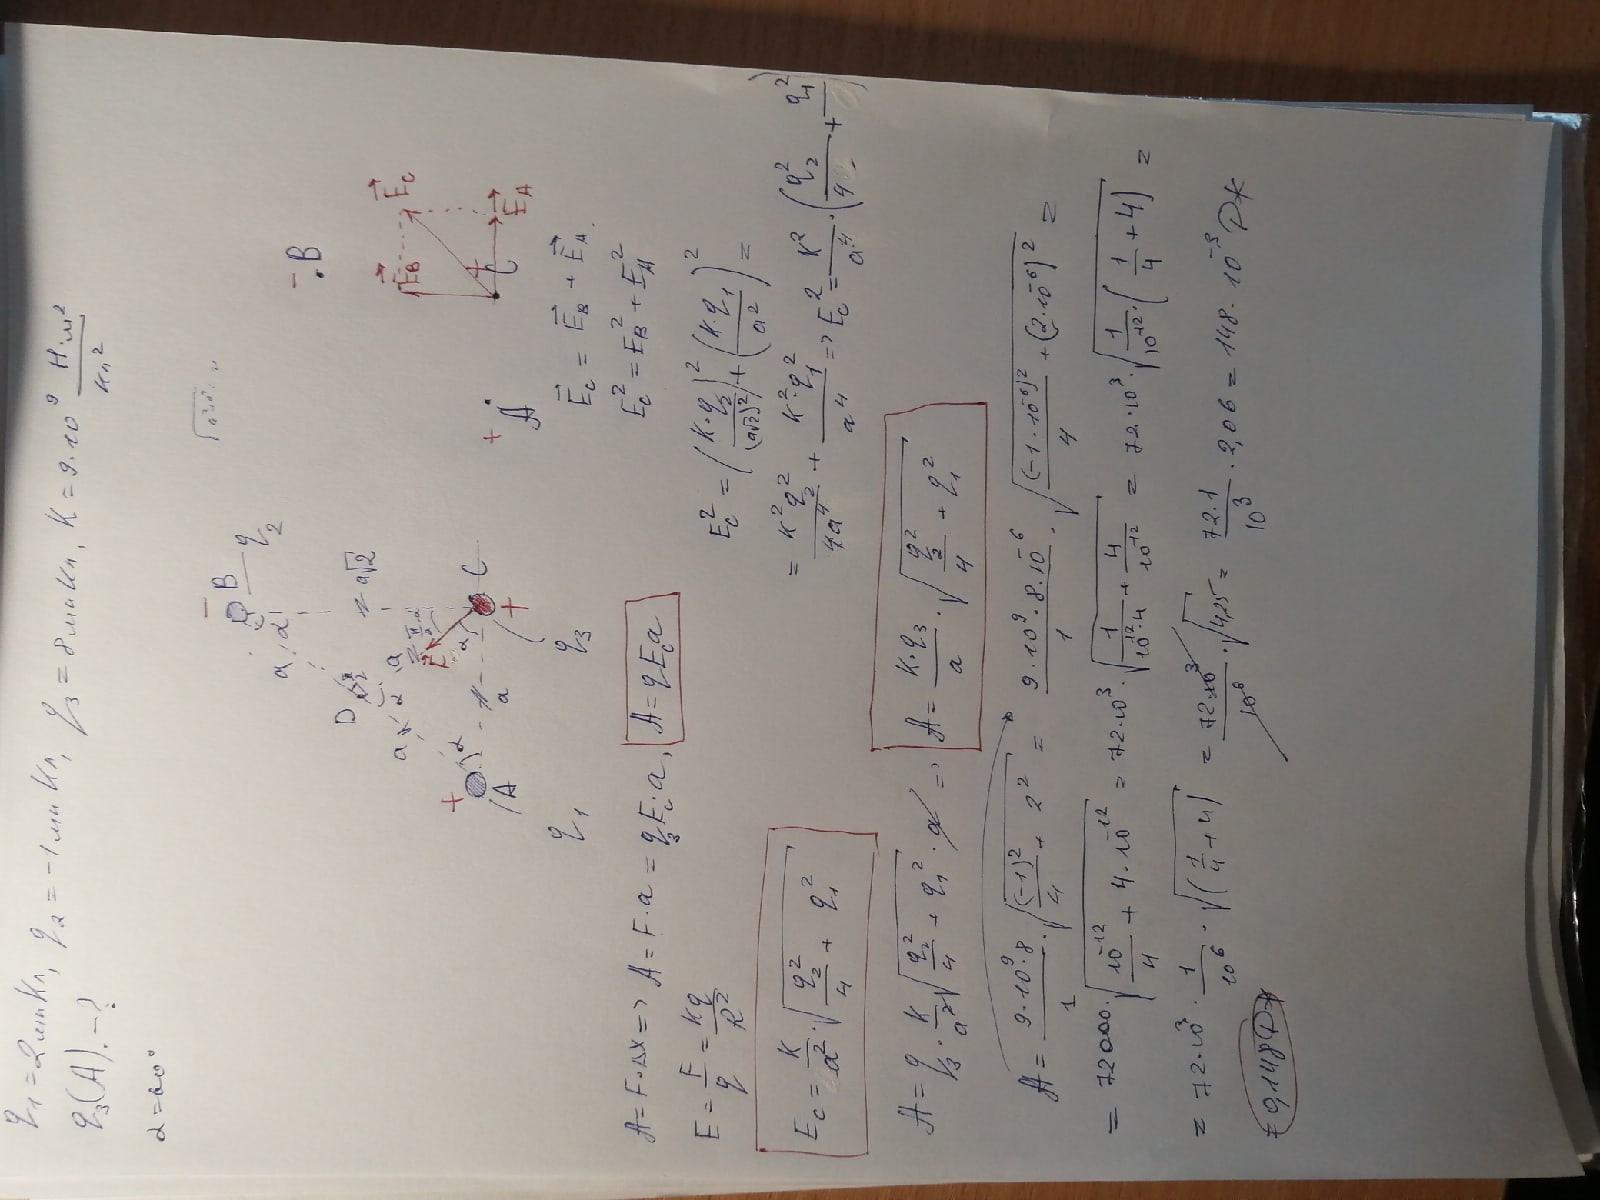 q₁ = 2мкКл, q₂ = −1мкКл, q₃ = 8мкКл, K = 9·10⁹ Н·м²/Кл²
q₃(A) − ?
α = 60°
−
B
q₂
a
α
D
a√2
a
a
α
F
α
a
+
A
q₁
C
+
q₃
−
·B
E⃗_B
E⃗_C
C
E⃗_A
+
A
E⃗_C = E⃗_B + E⃗_A
E_C² = E_B² + E_A²
A = F·ΔX => A = F·a = q₃E_C·a, A = qE_Ca
E = F/q = Kq/R²
E_C² = (K·q₂/(a√2)²)² + (K·q₁/a²)² =
= K²q₂²/4a⁴ + K²·q₁²/a⁴ => E_C² = K²/a⁴·(q₂²/4 + q₁²)
E_C = K/a²·√(q₂²/4 + q₁²)
A = q₃·K/a²·√(q₂²/4 + q₁²)·a => A = K·q₃/a·√(q₂²/4 + q₁²)
A = 9·10⁹·8/1·√((−1)²/4 + 2²) = 9·10⁹·8·10⁻⁶/1·√((−1·10⁻⁶)²/4 + (2·10⁻⁶)²) =
= 72000·√(10⁻¹²/4 + 4·10⁻¹²) = 72·10³·√(1/10¹²·4 + 4/10¹²) = 72·10³·√(1/10¹²·(1/4 + 4)) =
= 72·10³·1/10⁶·√(1/4 + 4) = 72·10³/10⁶·√4,25 = 72·1/10³·2,06 = 148·10⁻³ Дж
= 0,148 Дж